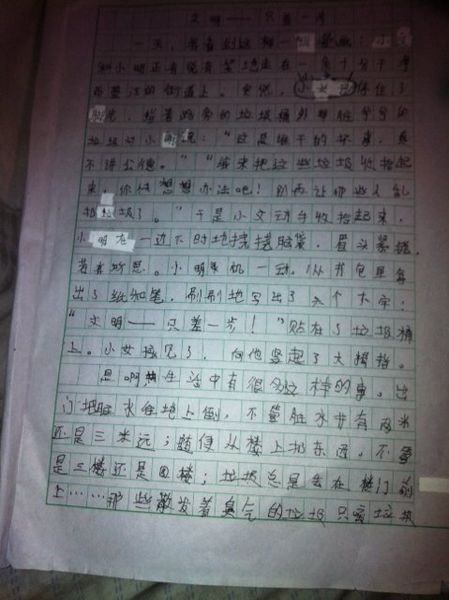 文明——只差一步
一天，我看到这样一幅漫画：小文
和小明正有说有笑地走在一条十分干净
而整洁的街道上。突然，小文拉住了
小明，指着路旁的垃圾桶外那脏兮兮的
垃圾对小明说："这是谁干的坏事，真
不讲公德。""我来把这些垃圾收拾起
来，你快想想办法吧！别再让那些人乱
扔垃圾了。"于是小文动手收拾起来，
小明在一边不时地挠挠脑袋，眉头紧锁，
若有所思。小明灵机一动，从书包里拿
出了纸和笔，刷刷地写出了六个大字：
"文明——只差一步！"贴在了垃圾桶
上。小文看见了，向他竖起了大拇指。
是啊，生活中有很多这样的事。出
门把脏水往地上倒，不管脏水井有两米
还是三米远；随便从楼上扔东西，不管
是三楼还是四楼；垃圾总是会在楼门前
上……那些散发着臭气的垃圾只离垃圾